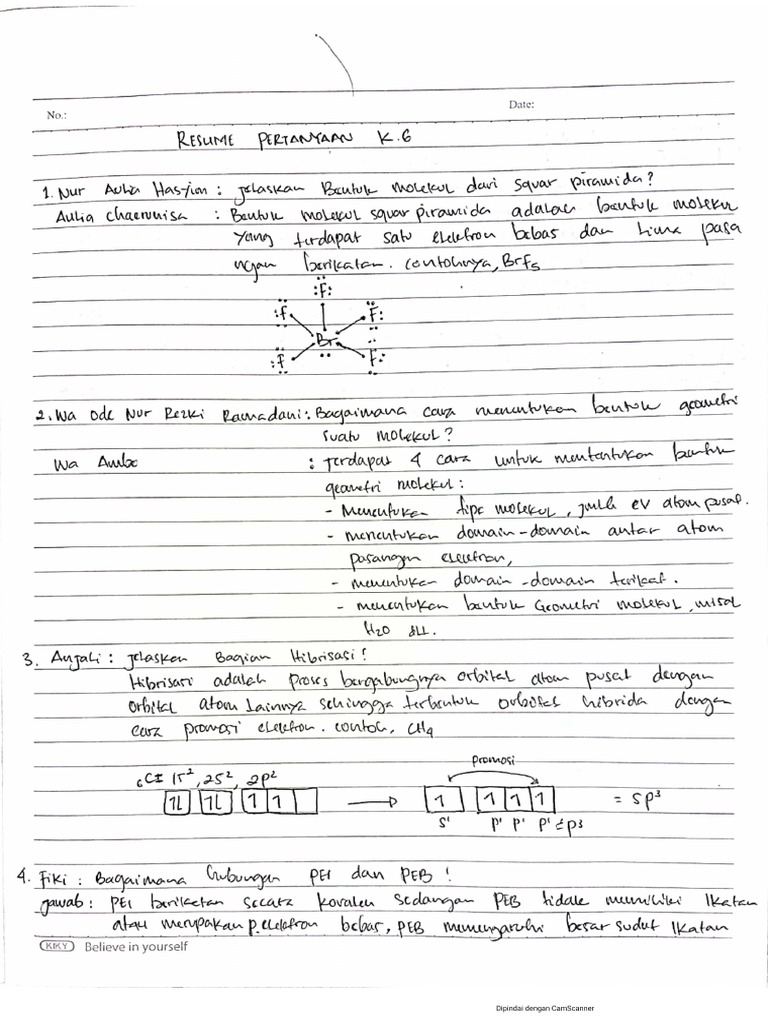 No.:
Date:
RESUME PERTANYAAN K.6
1. Nur Aulia Hasyim : jelaskan Bentuk molekul dari squar piramida?
Aulia chaerunisa : Bentuk molekul squar piramida adalah bentuk molekul
yang terdapat satu elektron bebas dan lima pasa
ngan berikatan. contohnya, BrF5
:F:
:F F:
Br
:F F:
2. Wa Ode Nur Rezki Ramadani : Bagaimana cara menentukan bentuk geometri
suatu molekul?
Wa Ambe : Terdapat 4 cara untuk mentantukan bentuk
geometri molekul :
- Menentukan tipe molekul, jmlh ev atom pusat.
- menentukan domain-domain antar atom
pasangan elektron,
- menentukan domain-domain terikat.
- menentukan bentuk Geometri molekul, misal
H2O dll.
3. Anjali : jelaskan Bagian Hibrisasi!
Hibrisasi adalah proses bergabungnya orbital atom pusat dengan
orbital atom lainnya sehingga terbentuk orbital hibrida dengan
cara promosi elektron. contoh, CH4
promosi
6C= 1s², 2s², 2p²
1L 1L 1 1 → 1 1 1 1 = sp³
s' p' p' p' = p3
4. Fiki : Bagaimana hubungan PEI dan PEB !
jawab : PEI berikatan secara kovalen sedangan PEB tidak memiliki Ikatan
atau merupakan p.elektron bebas, PEB memengaruhi besar sudut Ikatan
KIKY Believe in yourself
Dipindai dengan CamScanner